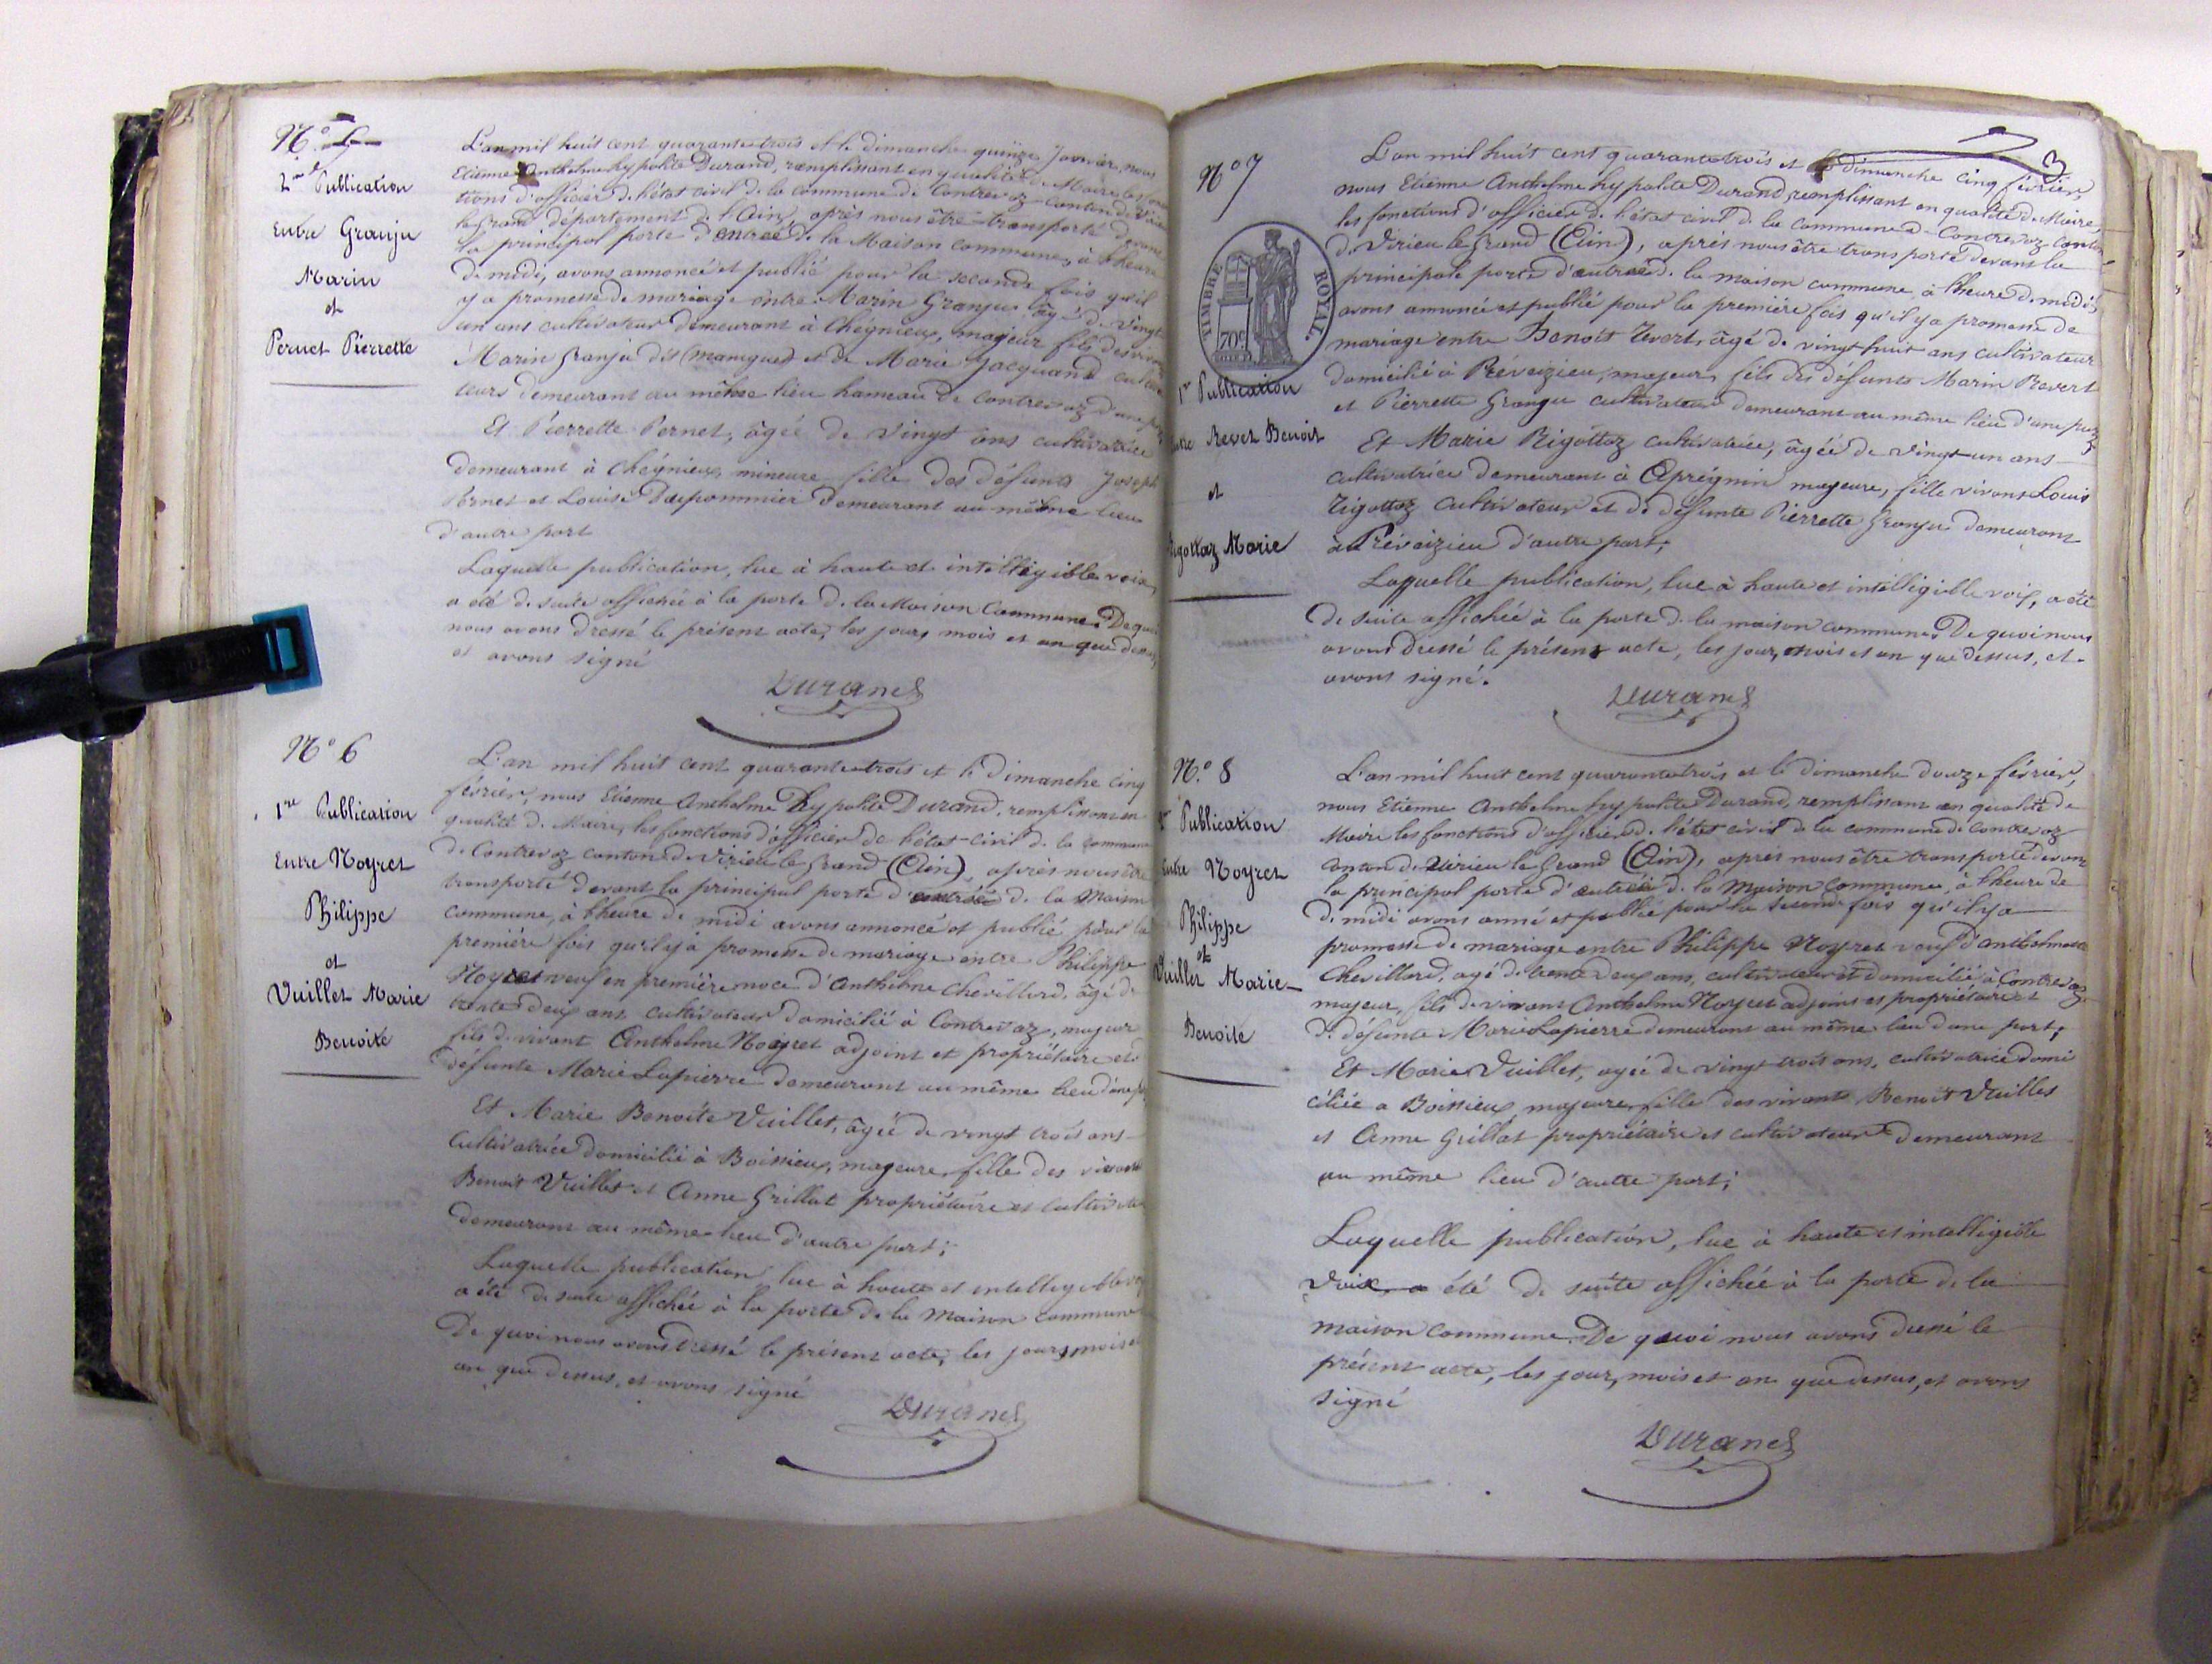 N.° 5
2me Publication
Entre Granju
Marin
et
Pernet Pierrette
L'an mil huit cent quarante trois et le dimanche quinze Janvier, nous
Etienne Anthelme hypolite Durand, remplissant en qualité de Maire les fonc
tions d'officier de l'état civil de la commune de Contrevoz canton de Virieu
le Grand département de l'Ain, après nous être transporté devant
la principal porte d'entrée de la Maison commune, à l'heure
de midi, avons annoncé et publié pour la seconde fois qu'il
y a promesse de mariage entre Marin Granju âgé de vingt
un ans cultivateur demeurant à Cheignieux, majeur fils des vivants
Marin Granju dit Manigued et de Marie Jacquand cultiva
teurs demeurant au même lieu hameau de Contrevoz d'une part
Et Pierrette Pernet, âgée de vingt ans cultivatrice
demeurant à Cheignieux, mineure fille des défunts Joseph
Pernet et Louise Depommier demeurant au même lieu
d'autre part
Laquelle publication, lue à haute et intelligible voix,
a été de suite affichée à la porte de la Maison Commune. De quoi
nous avons dressé le présent acte, les jours mois et an que dessus,
et avons signé
Durand
N° 6
1re Publication
Entre Noyret
Philippe
et
Vuillet Marie
Benoite
L'an mil huit cent quarante trois et le Dimanche cinq
février, nous Etienne Anthelme hypolite Durand, remplissant en
qualité de Maire, les fonctions d'officier de l'état-civil de la commune
de Contrevoz canton de Virieu le Grand (Ain), après nous être
transporté devant la principal porte d'entrée de la Maison
commune, à l'heure de midi avons annoncé et publié pour la
première fois qu'il y a promesse de mariage entre Philippe
Noyret veuf en première noce d'Anthelme Chevillard, âgé de
trente deux ans cultivateur domicilié à Contrevoz, majeur
fils de vivant Anthelme Noyret adjoint et propriétaire et de
défunte Marie Lapierre demeurant au même lieu d'une part
Et Marie Benoite Vuillet, âgée de vingt trois ans
Cultivatrice domicilié à Boissieu, majeure, fille des vivants
Benoit Vuillet et Anne Grillat propriétaire et cultivateur
demeurant au même lieu d'autre part;
Laquelle publication lue à haute et intelligible voix
a été de suite affichée à la porte de la Maison commune
De quoi nous avons dressé le présent acte, les jours, mois et
an que dessus, et avons signé
Durand
3
N° 7
TIMBRE ROYAL
70c
1re Publication
Entre Revert Benoit
et
Rigottaz Marie
L'an mil huit cent quarante trois et le dimanche cinq février,
nous Etienne Anthelme hypolite Durand, remplissant en qualité de Maire,
les fonctions d'officier de l'état civil de la commune de Contrevoz canton
de Virieu le Grand (Ain), après nous être transporté devant la
principale porte d'entrée de la maison commune à l'heure de midi,
avons annoncé et publié pour la première fois qu'il y a promesse de
mariage entre Benoit Revert, âgé de vingt huit ans cultivateur
domicilié à Préveizieu, majeur, fils des défunts Marin Revert
et Pierrette Grangu cultivateur demeurant au même lieu d'une part
Et Marie Rigottaz cultivatrice, âgée de vingt un ans
cultivatrice demeurant à Apreignin majeure, fille vivant Louis
Rigottaz cultivateur et de défunte Pierrette Granju demeurant
à Préveizieu d'autre part;
Laquelle publication, lue à haute et intelligible voix, a été
de suite affichée à la porte de la maison commune. De quoi nous
avons dressé le présent acte, les jour, mois et an que dessus, et
avons signé.
Durand
N.° 8
Publication
Entre Noyret
Philippe
et
Vuillet Marie
Benoite
L'an mil huit cent quarante trois et le dimanche douze février,
nous Etienne Anthelme hypolite Durand, remplissant en qualité de
Maire les fonctions d'officier de l'état civil de la commune de Contrevoz
canton de Virieu le Grand (Ain), après nous être transporté devant
la principal porte d'entrée de la Maison Commune, à l'heure de
de midi avons anné et publié pour la seconde fois qu'il y a
promesse de mariage entre Philippe Noyret veuf d'anthelme
Chevillard, agé de trente deux ans, cultivateur et domicilié à Contrevoz
majeur, fils de vivant Anthelme Noyret adjoint et propriétaire et
de défunte Marie Lapierre demeurant au même lieu d'une part;
Et Marie Vuillet, agée de vingt trois ans, cultivatrice domi
ciliée a Boissieu, majeure, fille des vivants Benoit Vuillet
et Anne Grillat propriétaire et cultivateur demeurant
au même lieu d'autre part;
Laquelle publication, lue à haute et intelligible
voix, a été de suite affichée à la porte de la
maison commune. De quoi nous avons dressé le
présent acte, les jour, mois et an que dessus, et avons
signé
Durand